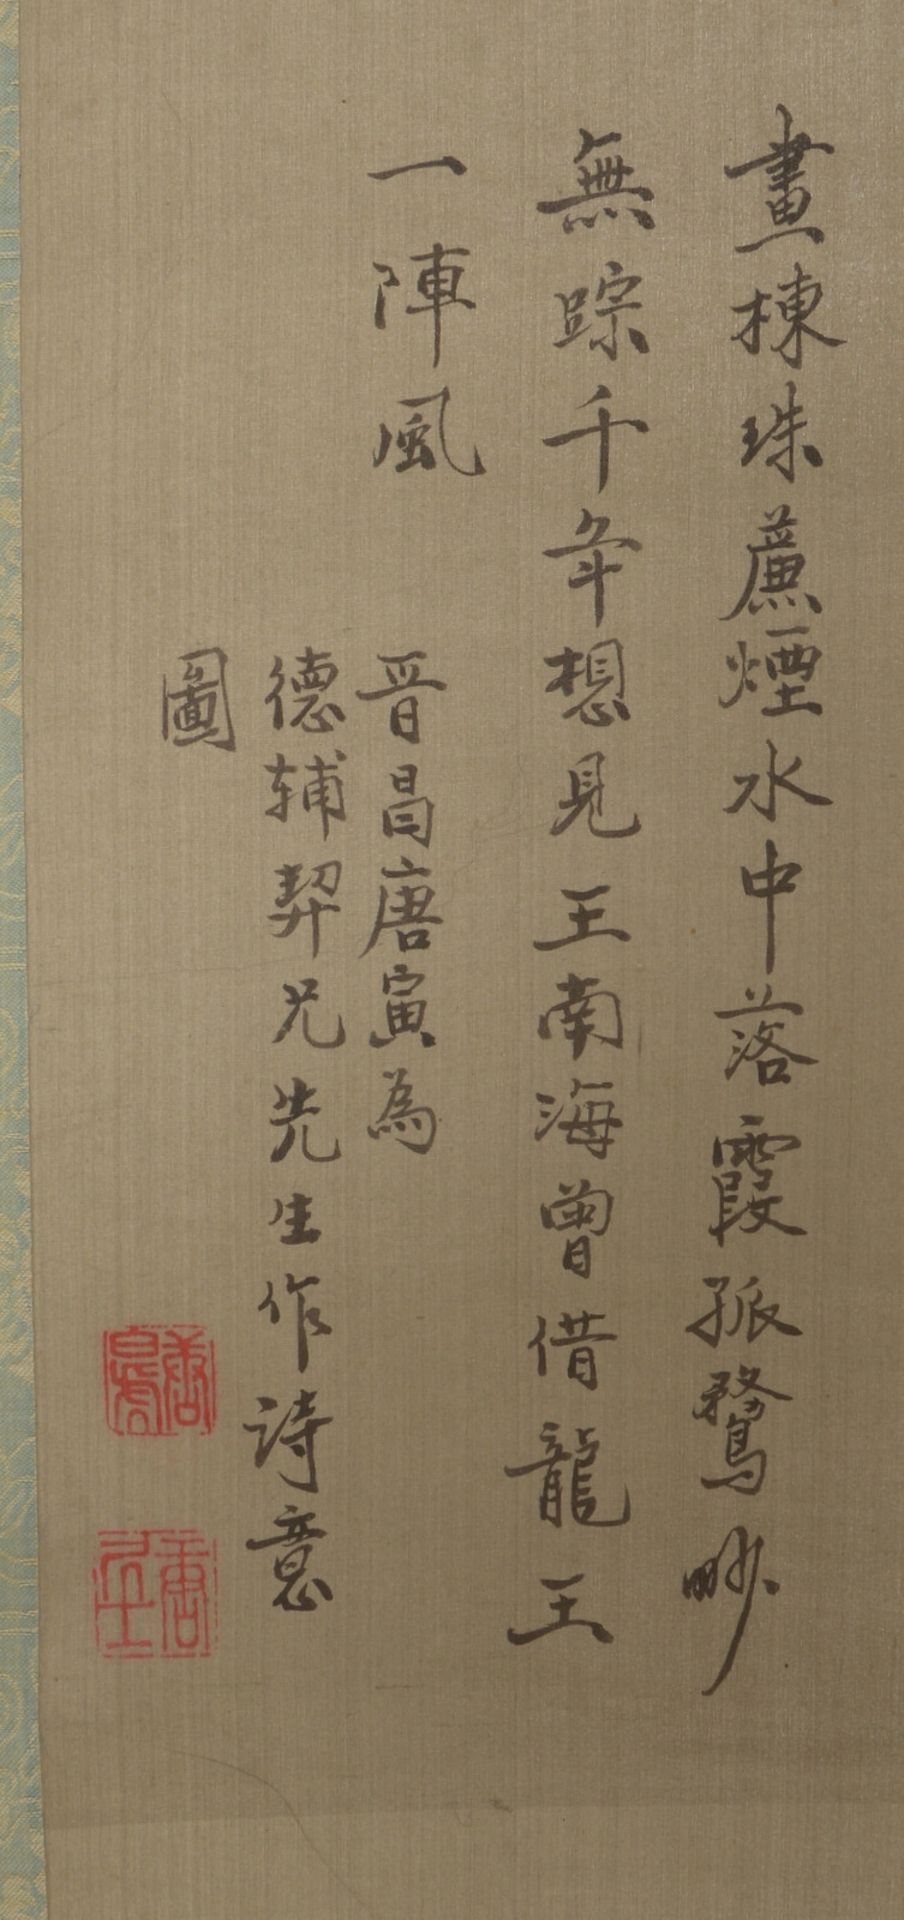 畫棟珠簾煙水中落霞孤鶩眇
無踪千年想見王南海曾借龍王
一陣風
晉昌唐寅為
德輔契兄先生作詩意
圖
唐寅
唐居士